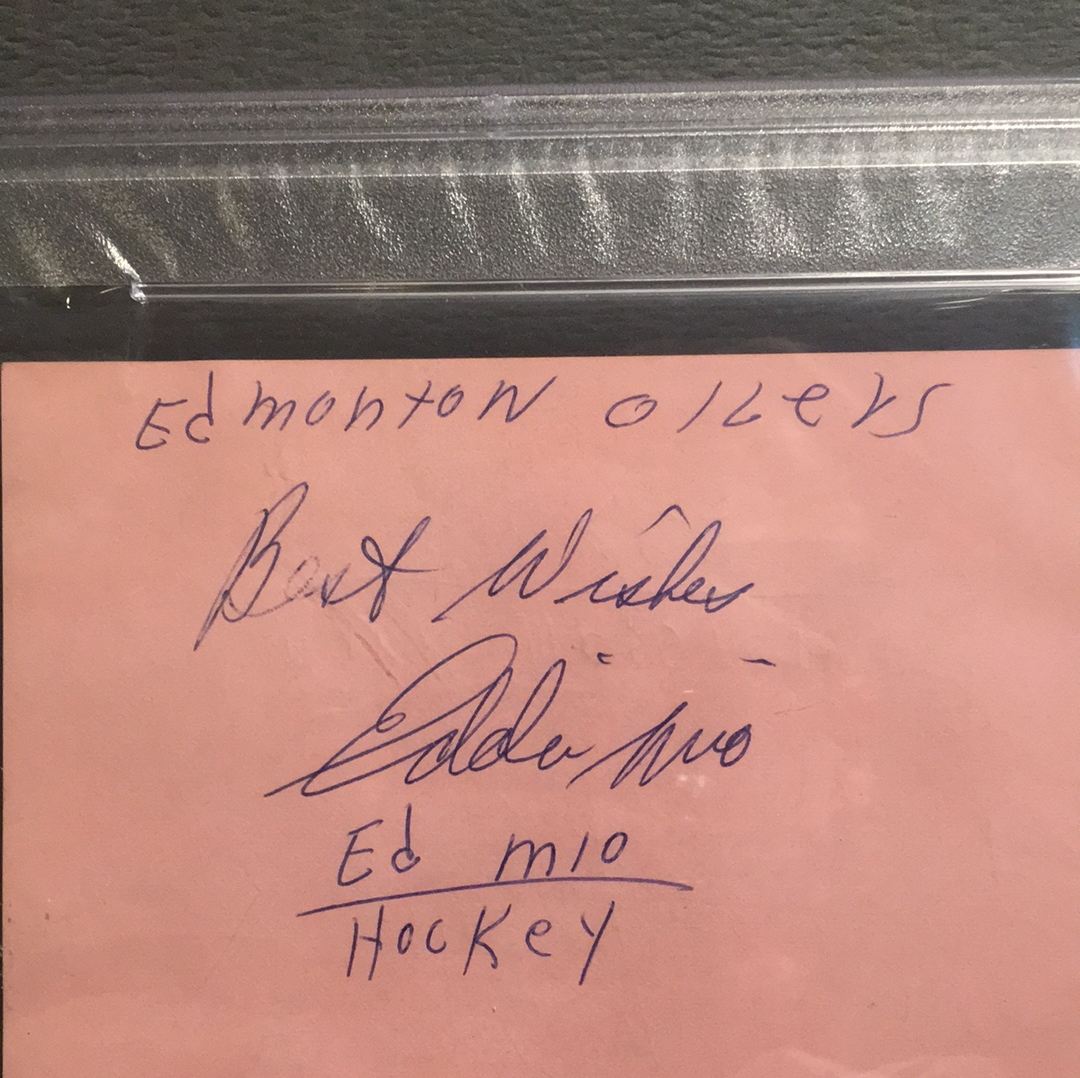 Edmonton oilers
Best Wishes
Eddie Mio
Ed mio
Hockey